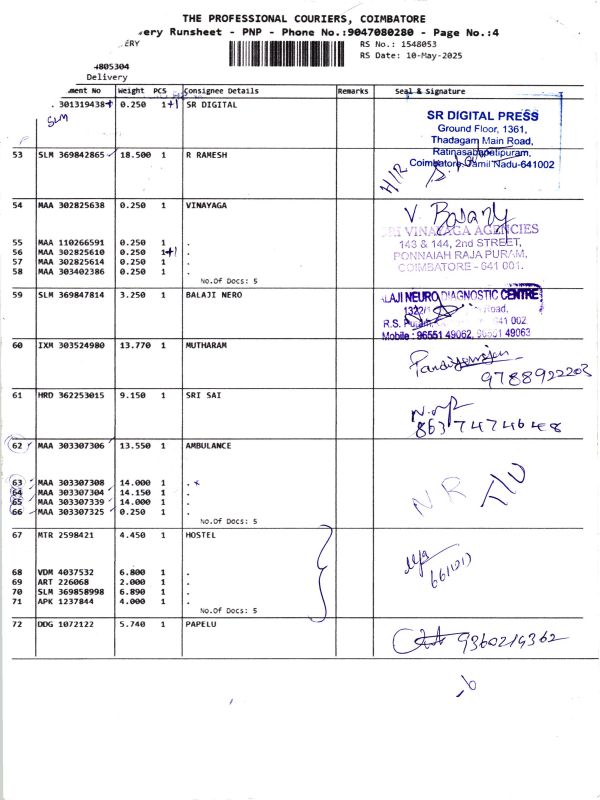 THE PROFESSIONAL COURIERS, COIMBATORE
ery Runsheet - PNP - Phone No.:9047080280 - Page No.:4
ERY
RS No.: 1548053
RS Date: 10-May-2025
4805304
Delivery
ment No Weight PCS Consignee Details Remarks Seal & Signature
301319438 0.250 1+1 SR DIGITAL
SLM
SR DIGITAL PRESS
Ground Floor, 1361,
Thadagam Main Road,
Ratinasabapatipuram,
Coimbatore, Tamil Nadu-641002
53 SLM 369842865 18.500 1 R RAMESH
H/R
54 MAA 302825638 0.250 1 VINAYAGA
SRI VINAYAGA AGENCIES
143 & 144, 2nd STREET,
PONNAIAH RAJA PURAM,
COIMBATORE - 641 001.
55 MAA 110266591 0.250 1 .
56 MAA 302825610 0.250 1+1 .
57 MAA 302825614 0.250 1 .
58 MAA 303402386 0.250 1 .
No.Of Docs: 5
59 SLM 369847814 3.250 1 BALAJI NERO
ALAJI NEURO DIAGNOSTIC CENTRE
1322/ Road,
R.S. Puram, 641 002
Mobile : 96551 49062, 96551 49063
60 IXM 303524980 13.770 1 MUTHARAM
9788922203
61 HRD 362253015 9.150 1 SRI SAI
8637474648
62 MAA 303307306 13.550 1 AMBULANCE
63 MAA 303307308 14.000 1 . x
64 MAA 303307304 14.150 1 .
65 MAA 303307339 14.000 1 .
66 MAA 303307325 0.250 1 .
No.Of Docs: 5
NR
67 MTR 2598421 4.450 1 HOSTEL
68 VDM 4037532 6.800 1 .
69 ART 226068 2.000 1 .
70 SLM 369858998 6.890 1 .
71 APK 1237844 4.000 1 .
No.Of Docs: 5
72 DDG 1072122 5.740 1 PAPELU
9360214362